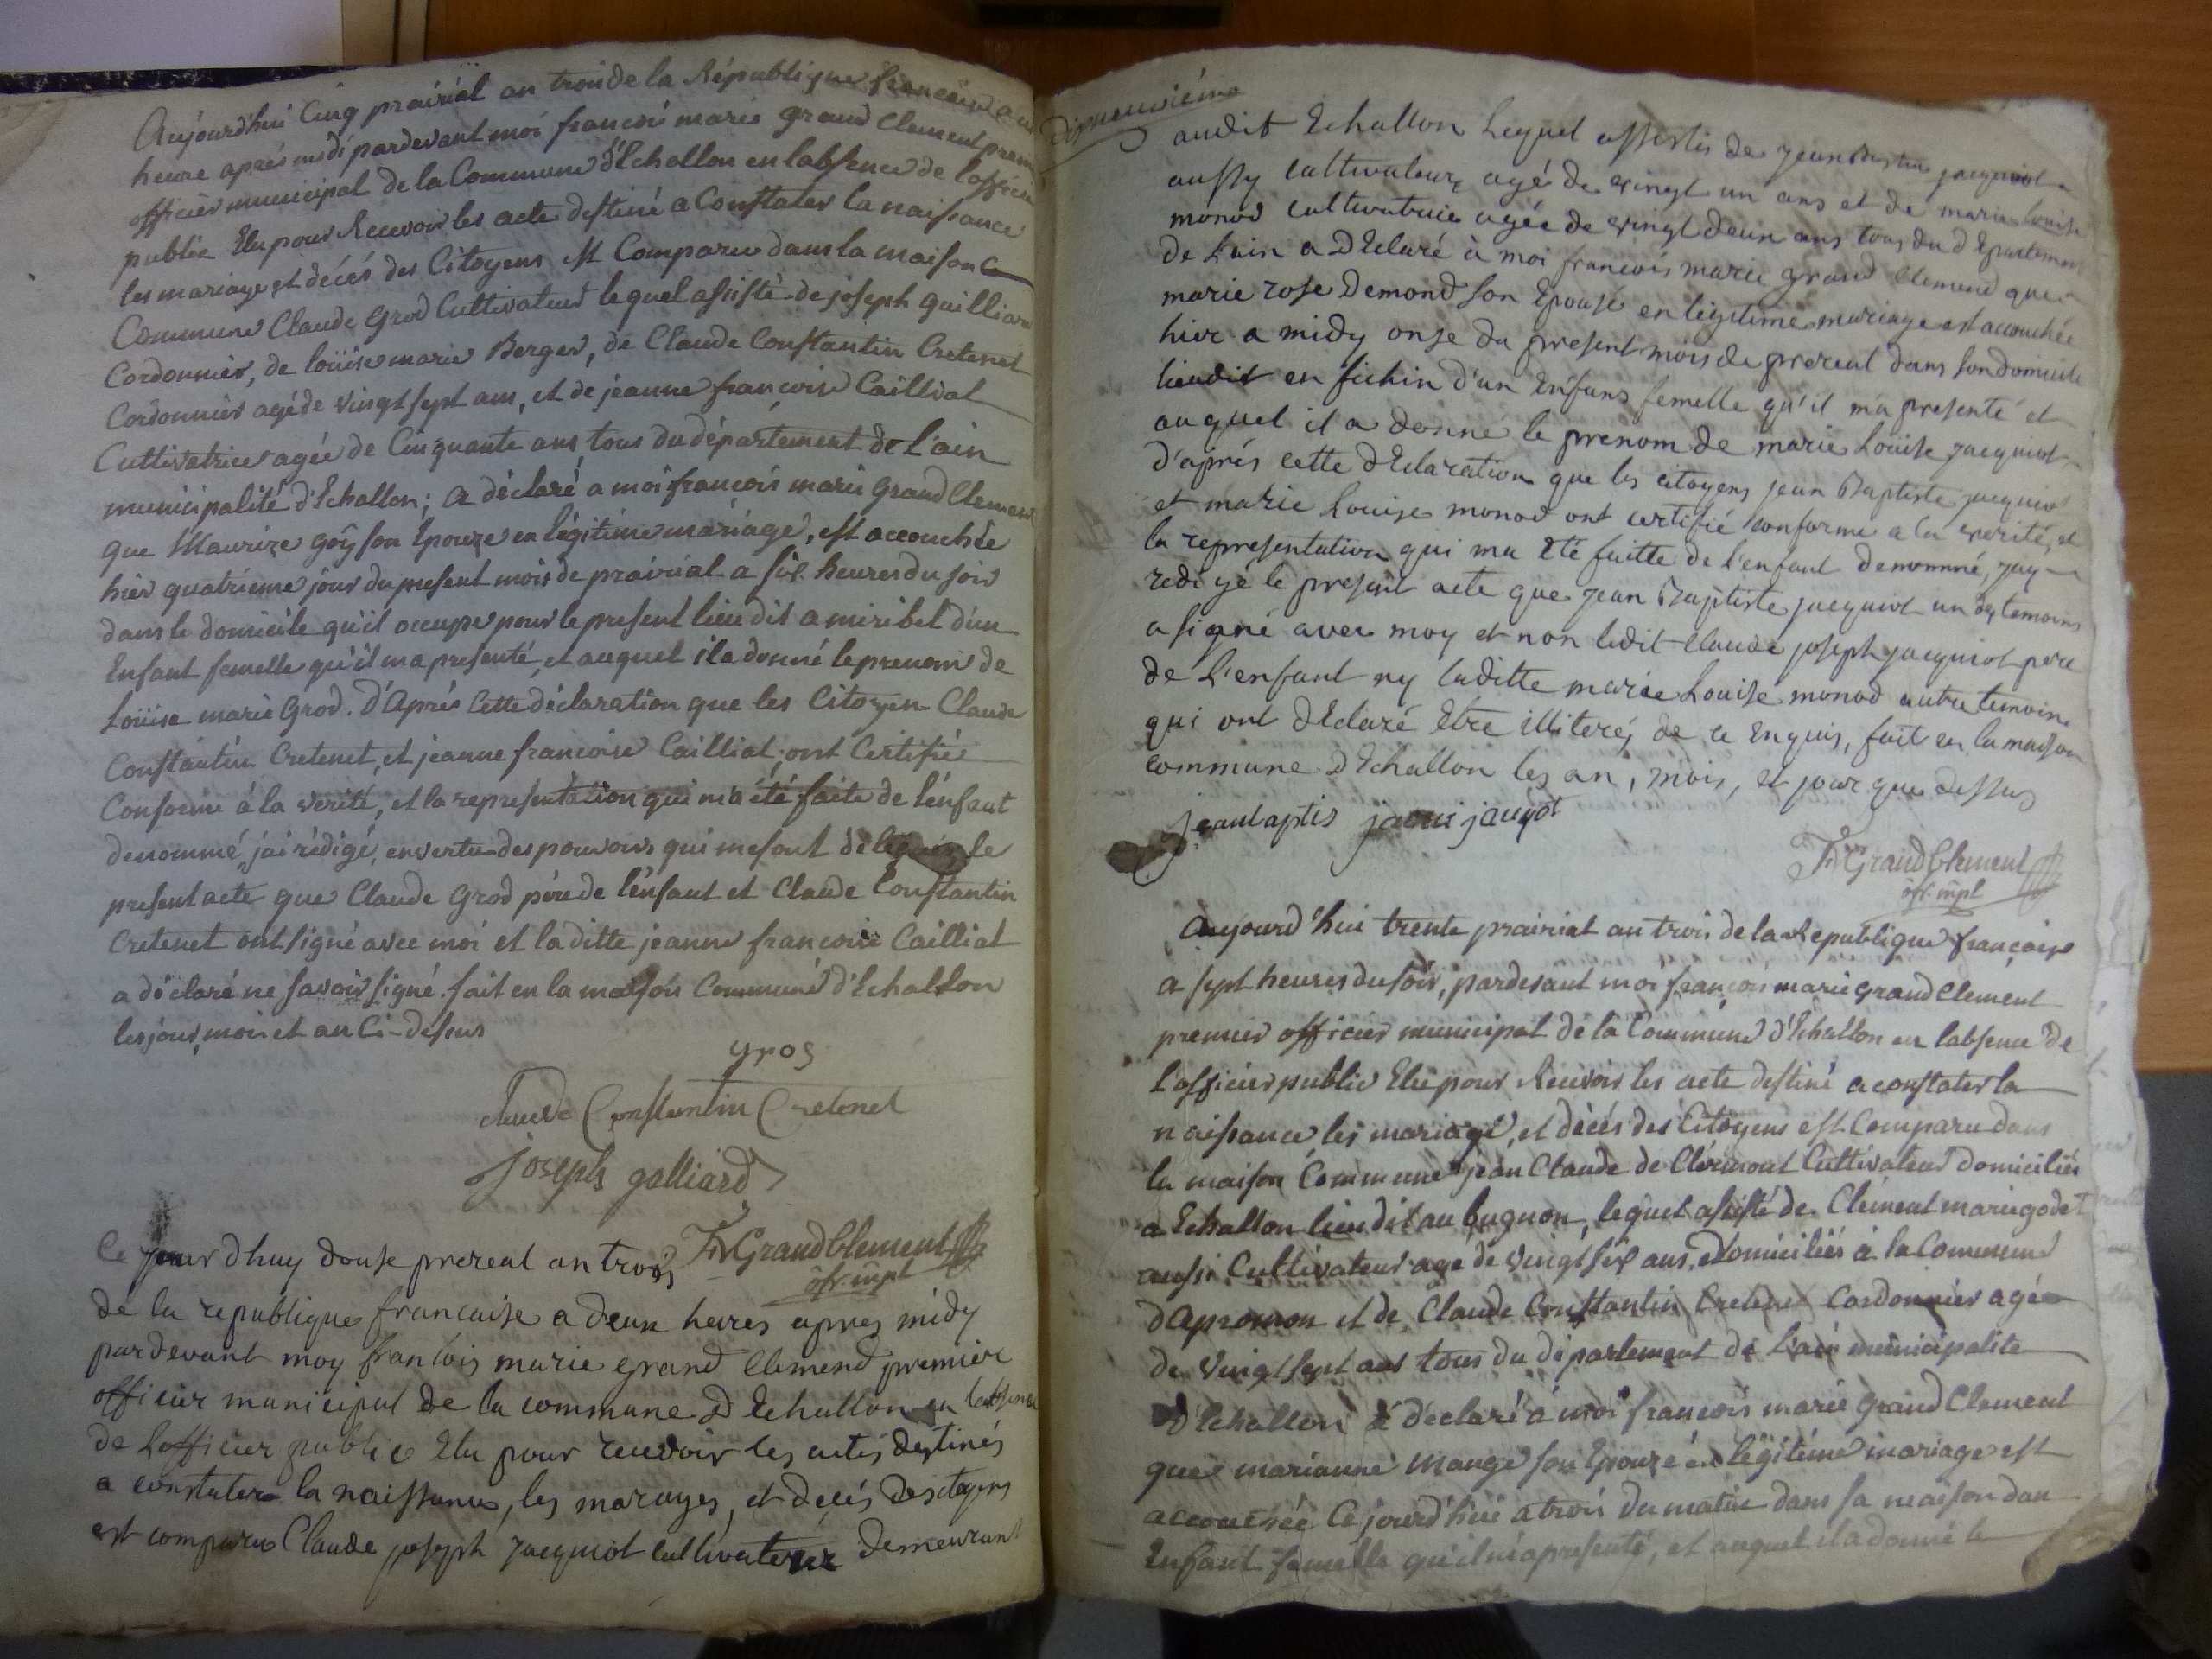 Aujourd'hui Cinq prairial an trois de la République francaise a une
heure aprés midi pardevant moi francois marie grand Clement premier
officier municipal de la Commune d'Echallon en labsence de lofficier
public Elu pour Recevoir les acte destiné a Constater la naissance
les mariage et décés des Citoyens est Comparu dans la maison
Commune Claude Grod Cultivateur lequel assisté de joseph gailliard
Cordonnier, de loüise marie Berger, de Claude Constantin Cretenet
Cordonnier agé de vingt sept ans, et de jeanne francoise Cailliat
Cultivatrice agée de Cinquante ans, tous du département de L'ain
municipalité d'Echallon; a déclaré a moi francois marie Grand Clement
que Maurize Goÿ son Epouze en légitime mariage, est accouchée
hier quatrieme jour du present mois de prairial a six heures du soir
dans le domicile qu'il occupe pour le present lieu dit a miribel d'un
Enfant femelle qu'il ma presenté, et auquel il a donné le prenom de
Loüise marie Grod. d'Aprés Cette déclaration que les Citoyen Claude
Constantin Cretenet, et jeanne francoise Cailliat, ont Certifié
Conforme à la verité, et la representation qui m'a été faite de l'enfant
denommé, jai rédigé, en vertu des pouvoirs qui me sont délégués, le
present acte que Claude Grod pére de l'enfant et Claude Constantin
Cretenet ont signé avec moi et la ditte jeanne francoise Cailliat
a déclaré ne savoir signé. fait en la maison Commune d'Echallon
les jour, mois et an Ci-dessus
gros
claude Constantin Cretenet
joseph galliard
fr Grand Clement
ofr. mpl
Ce jour dhuy douse prereal an trois
de la republique francaise a deux heures apres midy
pardevant moy francois marie grand Clemend premier
officier municipal de la commune d Echallon en labsence
de Lofficier public Elu pour recevoir les actes destinés
a constater la naissance, les maryages, et decés des citoyens
est comparu Claude joseph jacquiot cultivateur demeurant
dixneuvième
audit Echallon Lequel assistés de jean Baptiste jacquiot
aussy cultivateur agé de vingt un ans et de marie louise
monod cultivatrice agée de vingt deux ans tous du d Epartement
de Lain a dEclaré à moi francois marie grand Clemend que
marie rose Demond son Epouse en légitime mariage est accouchée
hier a midy onse du present mois de prereal dans son domicile
lieudit en fichin d'un Enfans femelle qu'il ma presenté et
auquel il a donné le prenom de marie Loüise jacquiot
d'aprés cette dEclaration que les citoyens jean Baptiste jacquiot
et marie Louise monod ont certifié conforme a la verité, et
la representation qui ma Eté faitte de l'enfant denommé, jay
redigé le present acte que jean Baptiste jacquiot un des temoins
a signé avec moy et non ledit Claude joseph jacquiot pere
de L'enfant ny laditte marie Louise monod autre temoin
qui ont dEclaré Etre illiterés de ce Enquis, fait en la maison
commune d Echallon les an, mois, et jour que dessus
jeanbaptis jacquot
fr Grand Clement
ofr. mpl
Aujourd'hui trente prairial an trois de la Republique française
a sept heures du soir, pardevant moi françois marie grand Clement
premier officier municipal de la Commune d'Echallon en labsence de
Lofficier public Elu pour Recevoir les acte destiné a constater la
naissance les mariage, et décés des Citoyens est Comparu dans
la maison Commune jean Claude de Clermont Cultivateur domiciliés
a Echallon lieu dit au bugnon, lequel assisté de Clément marie godet
aussi Cultivateur agé de vingt six ans, domiciliés à la Commune
d'Apremon et de Claude Constantin Cretenet Cordonnier agée
de vingt sept ans tous du département de L'ain municipalite
d'Echallon a déclaré à moi francois marie Grand Clement
que marianne Mange son Epouze en légitime mariage est
accouchée Ce jourd'hui a trois du matin dans sa maison dun
Enfant femelle qu'il m'a presenté, et auquel il a donné le